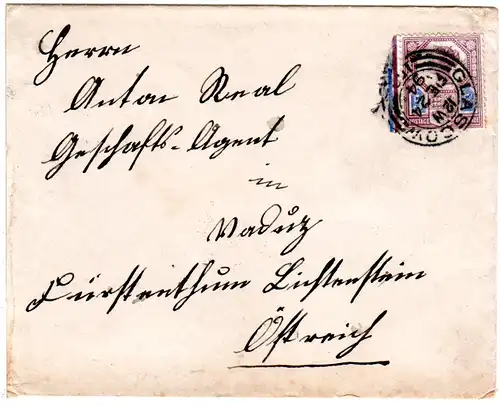 Herrn
Anton Real
Geschafts-Agent
in
Vaduz
Fürstenthum Lichtenstein
Östreich
GLASGOW